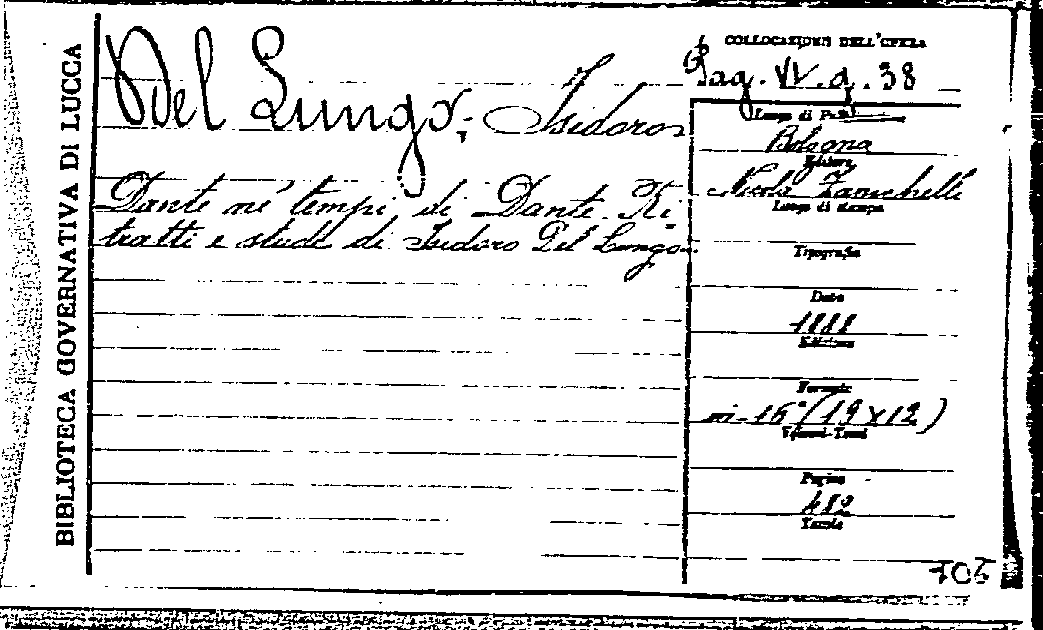 BIBLIOTECA GOVERNATIVA DI LUCCA
Del Lungo, Isidoro
Dante ne' tempi di Dante. Ri
tratti e studi di Isidoro Del Lungo.
COLLOCAZIONE DELL'OPERA
Pag. VV. g. 38
Luogo di Pubbl.
Bologna
Editore
Nicola Zanichelli
Luogo di stampa
Tipografia
Data
1888
Edizione
Formato
in-16° (19 x 12)
Volumi-Tomi
Pagine
482
Tavole
105